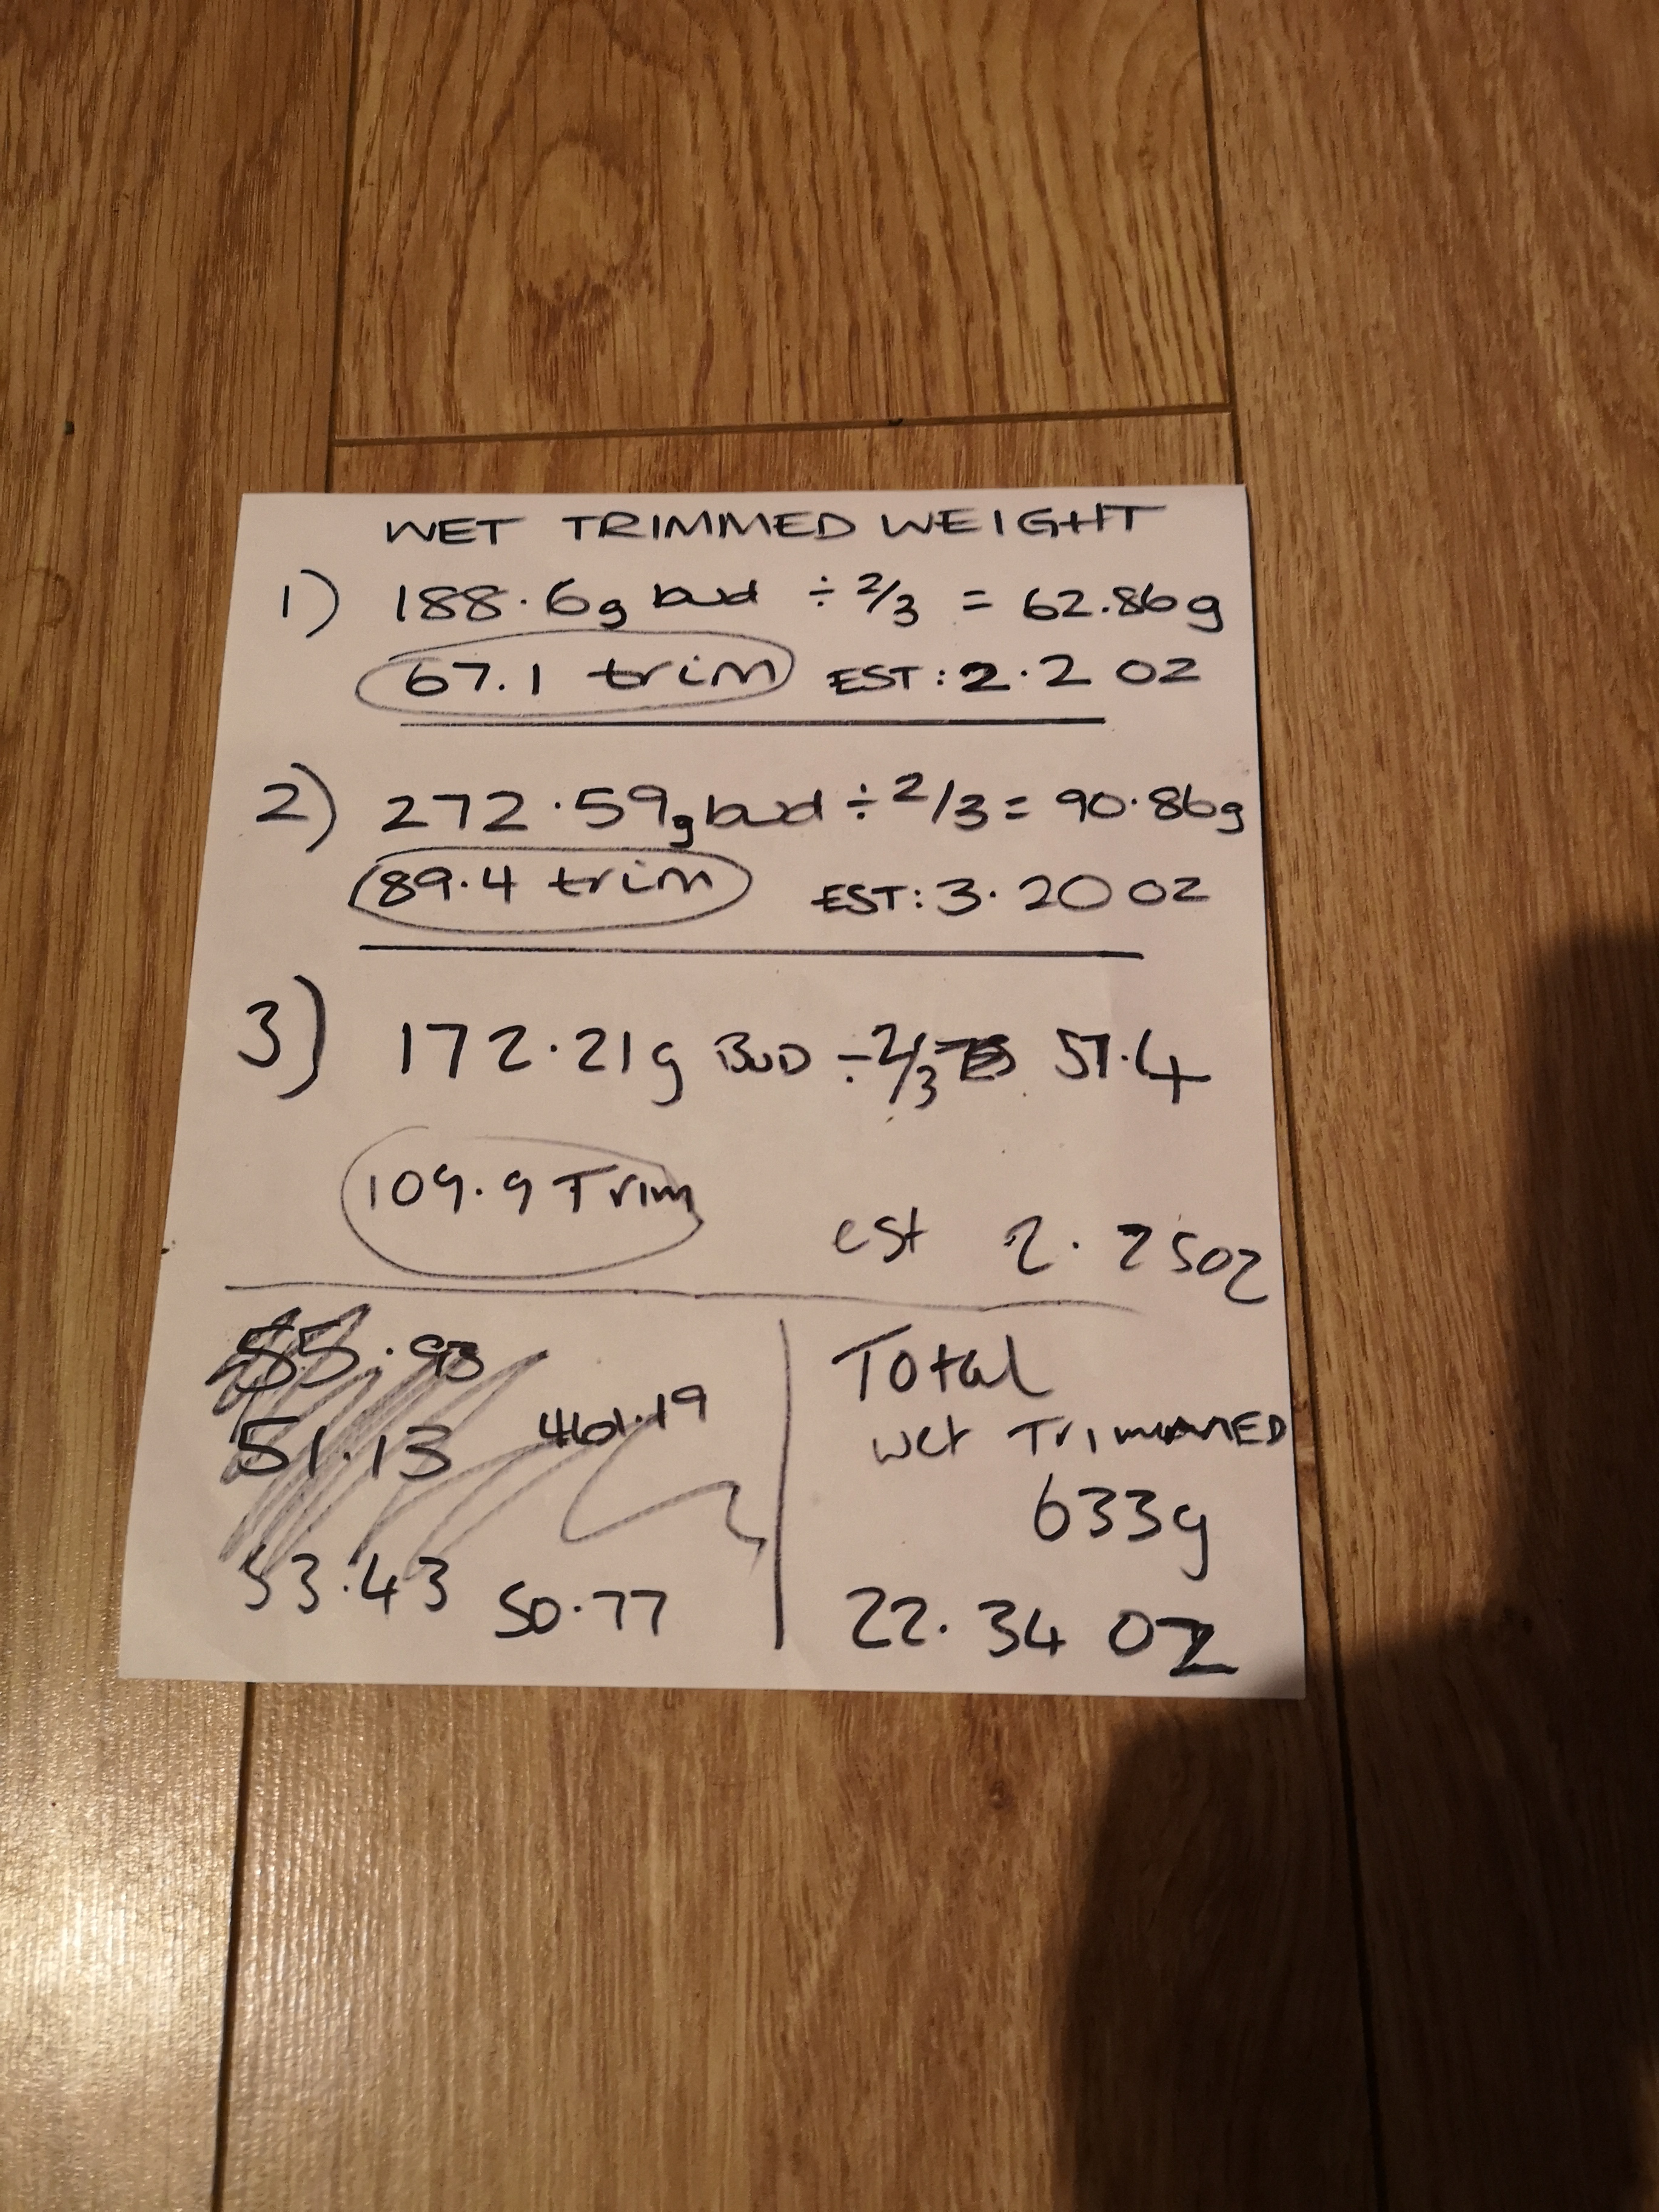 WET TRIMMED WEIGHT
1) 188.6g bud ÷ 2/3 = 62.86g
67.1 trim EST: 2.2 oz
2) 272.59g bud ÷ 2/3 = 90.86g
89.4 trim EST: 3.20 oz
3) 172.21g BUD ÷ 2/3 57.4
109.9 Trim
est 2.25oz
55.93
51.13 461.19
53.43 50.77
Total
wet TrimMED
633g
22.34 oz